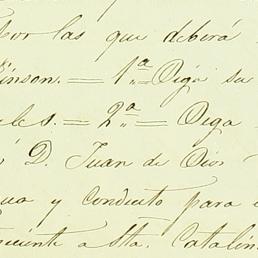 por las que deberá
inson. = 1ª Diga su
les. = 2ª = Diga
D. Juan de Dios
y conducto para
a Sta. Catalin